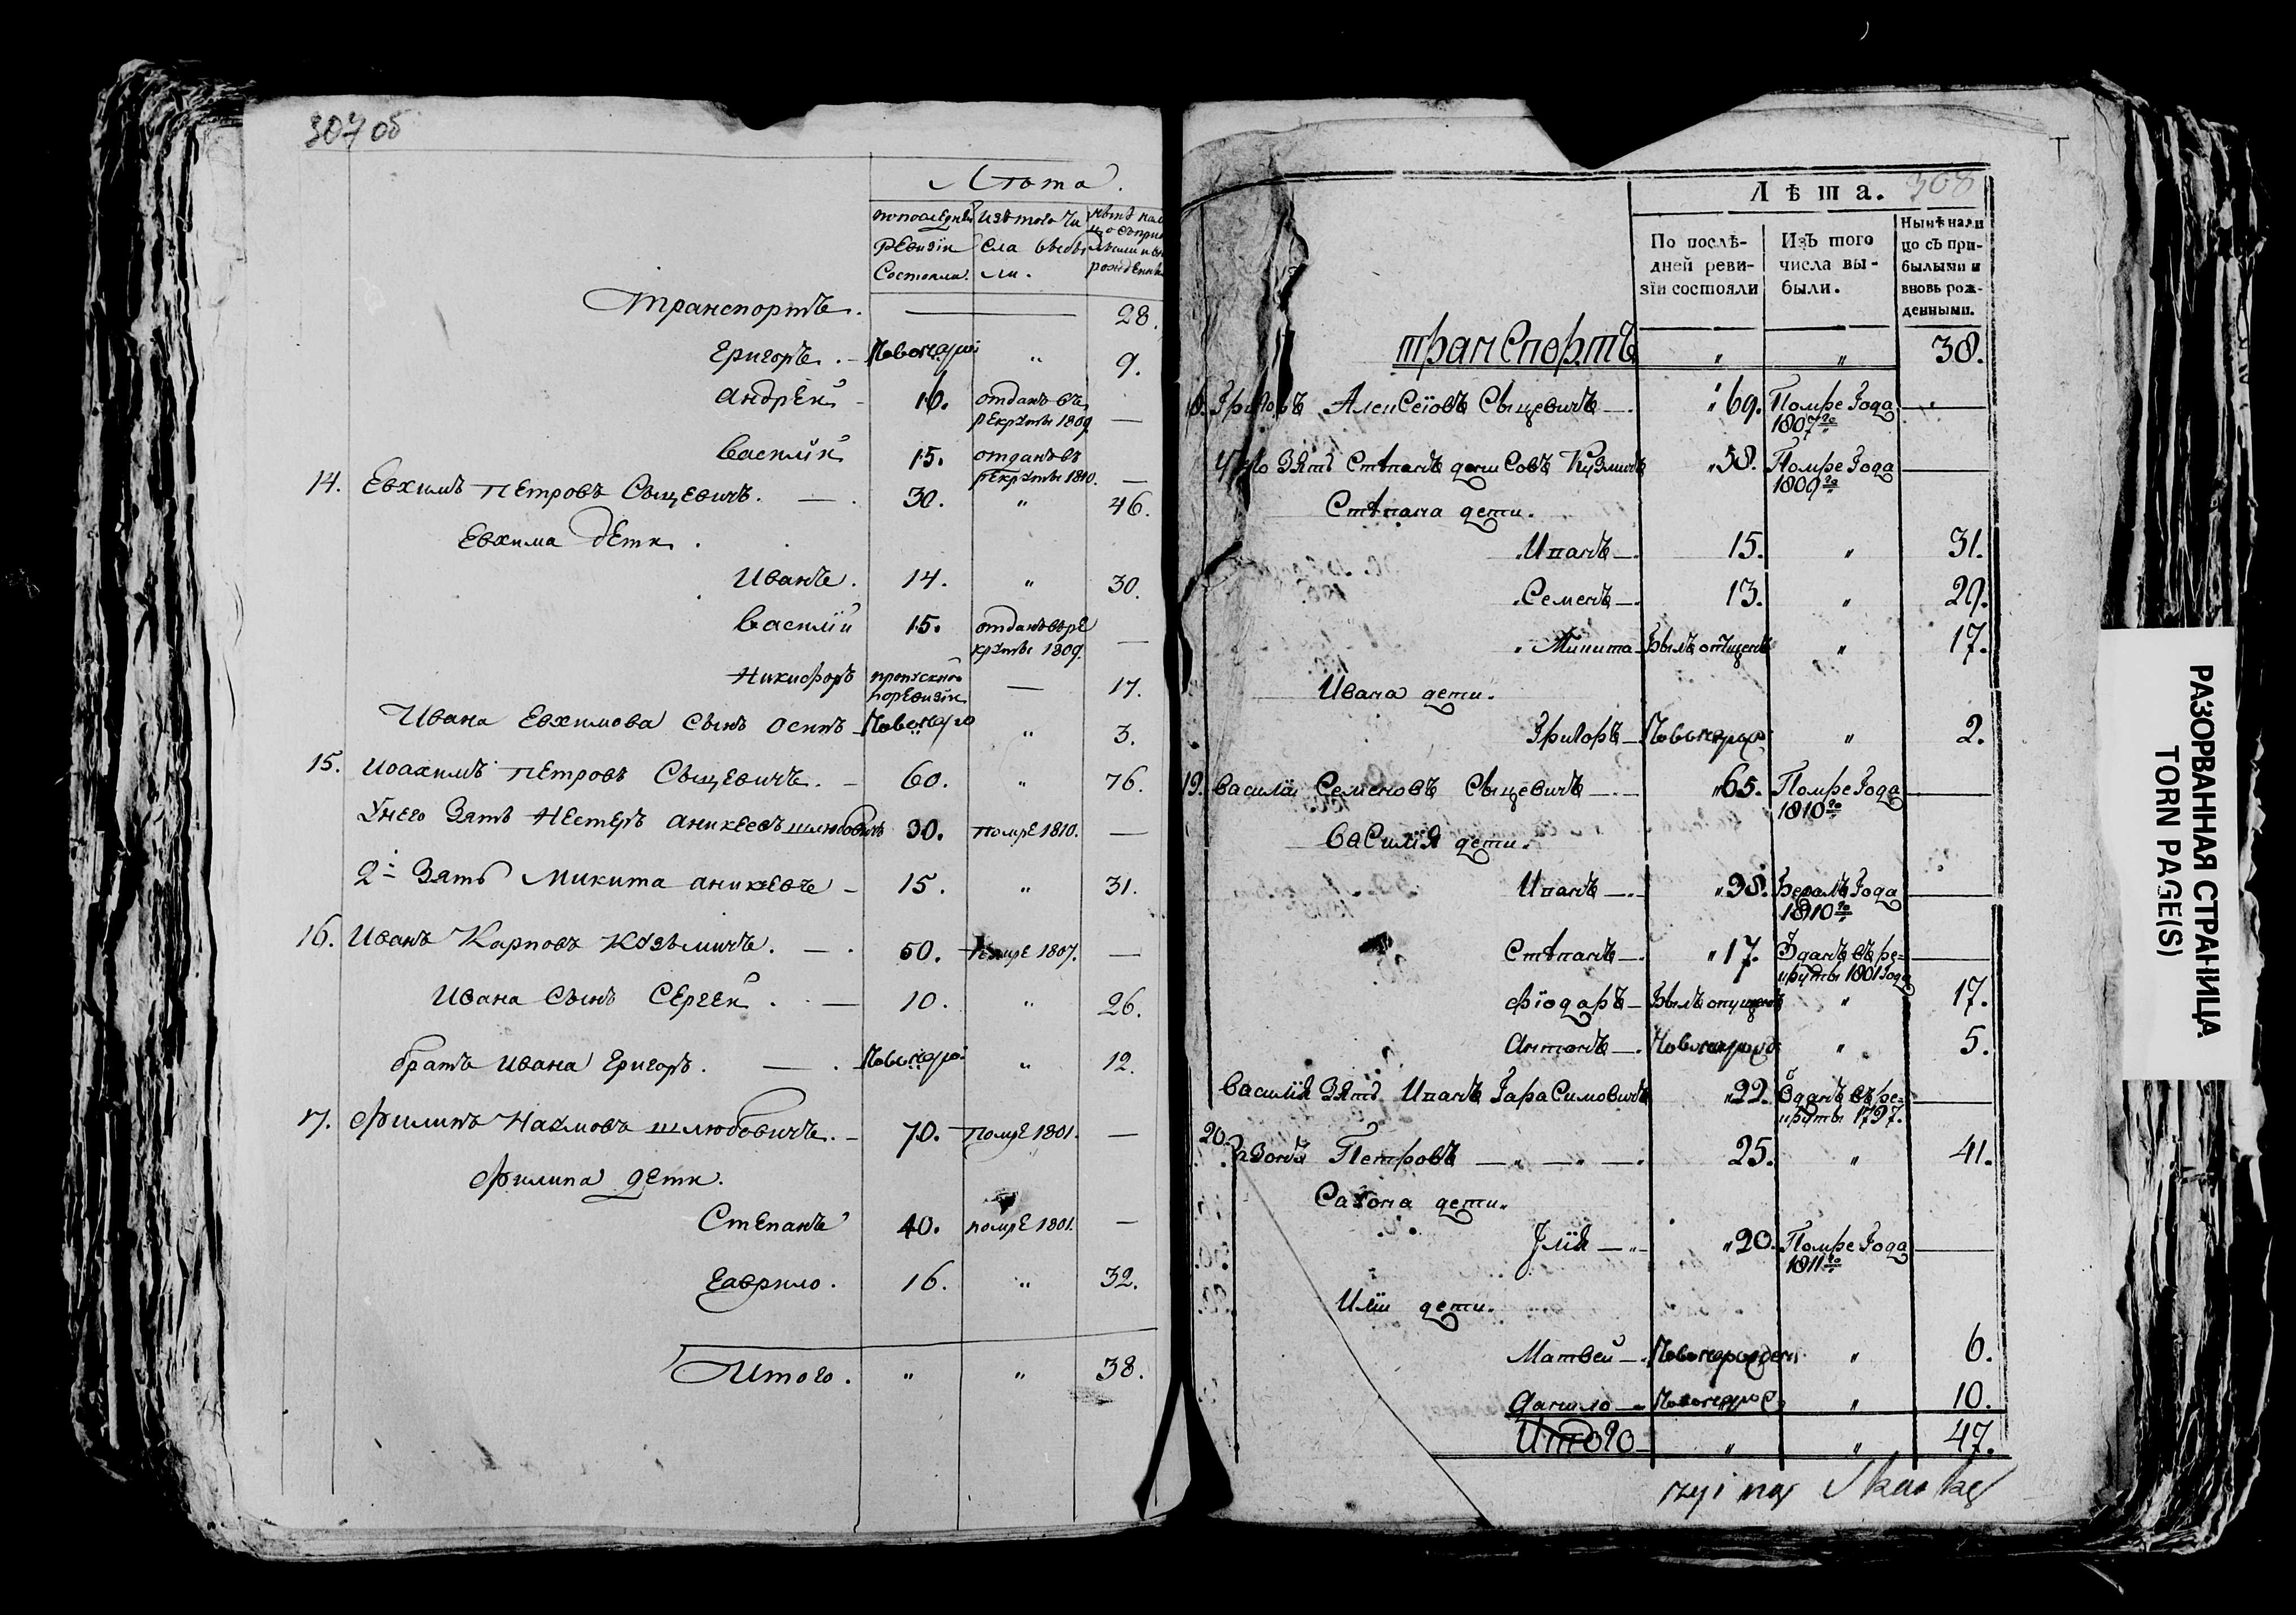 307 об
Лѣта.
по последней Изъ того чи
ревизiи сла выбы
Состояли. ли.
Транспортъ. — 28.
Григоръ. — Новонарож „ 9.
Андрей — 16. отданъ въ
рекруты 1809. —
Василiй 15. отданъ въ
рекруты 1810. —
14. Евхимъ Петровъ Сыцевичъ. — 30. „ 46.
Евхима дети.
Иванъ. 14. „ 30.
Василiй 15. отданъ въ ре
круты 1809. —
Никифоръ — 17.
Ивана Евхимова сынъ Осипъ — Новонаро „ 3.
15. Иоахимъ Петровъ Сыцевичъ. — 60. „ 76.
У него Зять Нестеръ Аникеевъ шлюбовичъ 30. помре 1810. —
2й Зять Микита Аникеевъ — 15. „ 31.
16. Иванъ Карповъ Кузьмичъ. — 50. помре 1807. —
Ивана Сынъ Сергей. — 10. „ 26.
братъ Ивана Григоръ. — Новонаро „ 12.
17. Филипъ Наумовъ шлюбовичъ. — 70. помре 1801. —
Филипа дети.
Степанъ 40. помре 1801. —
Гаврило. 16. „ 32.
Итого. „ „ 38.
308
Лѣта.
По послѣ- Изъ того Нынѣ нали
дней реви- числа вы- цо съ при-
зiи состояли были. былыми и
вновь рож-
денными.
транспортъ „ „ 38.
18. Григоръ Алексеiовъ Сыцевичъ — „69. Помре Года —
1807го
Зять Стѣпанъ денисовъ Кузмичъ „58. Помре Года —
1809го
Стѣпана дети.
Иванъ — 15. „ 31.
Семенъ — 13. „ 29.
Микита — Былъ опущенъ „ 17.
Ивана дети.
Григоръ — Новонарож „ 2.
19. Василiй Семеновъ Сыцевичъ — „65. Помре Года —
1810го
Василiя дети.
Иванъ — „38. Года —
1810го
Стѣпанъ — „17. Зданъ въ ре- —
круты 1801 Года
Фiодаръ — Былъ опущенъ „ 17.
Антонъ — Новонарожд „ 5.
Василiя Зять Иванъ Гарасимовичъ „22. Зданъ въ ре- —
круты 1797.
20. Петровъ — „ — „ — 25. „ 41.
дети.
Iлiя — „ — „20. Помре Года —
1811го
Илiи дети.
Матвей — Новонарожден „ 6.
Данило — Новонарож „ 10.
Итого — „ „ 47.
РАЗОРВАННАЯ СТРАНИЦА
TORN PAGE(S)